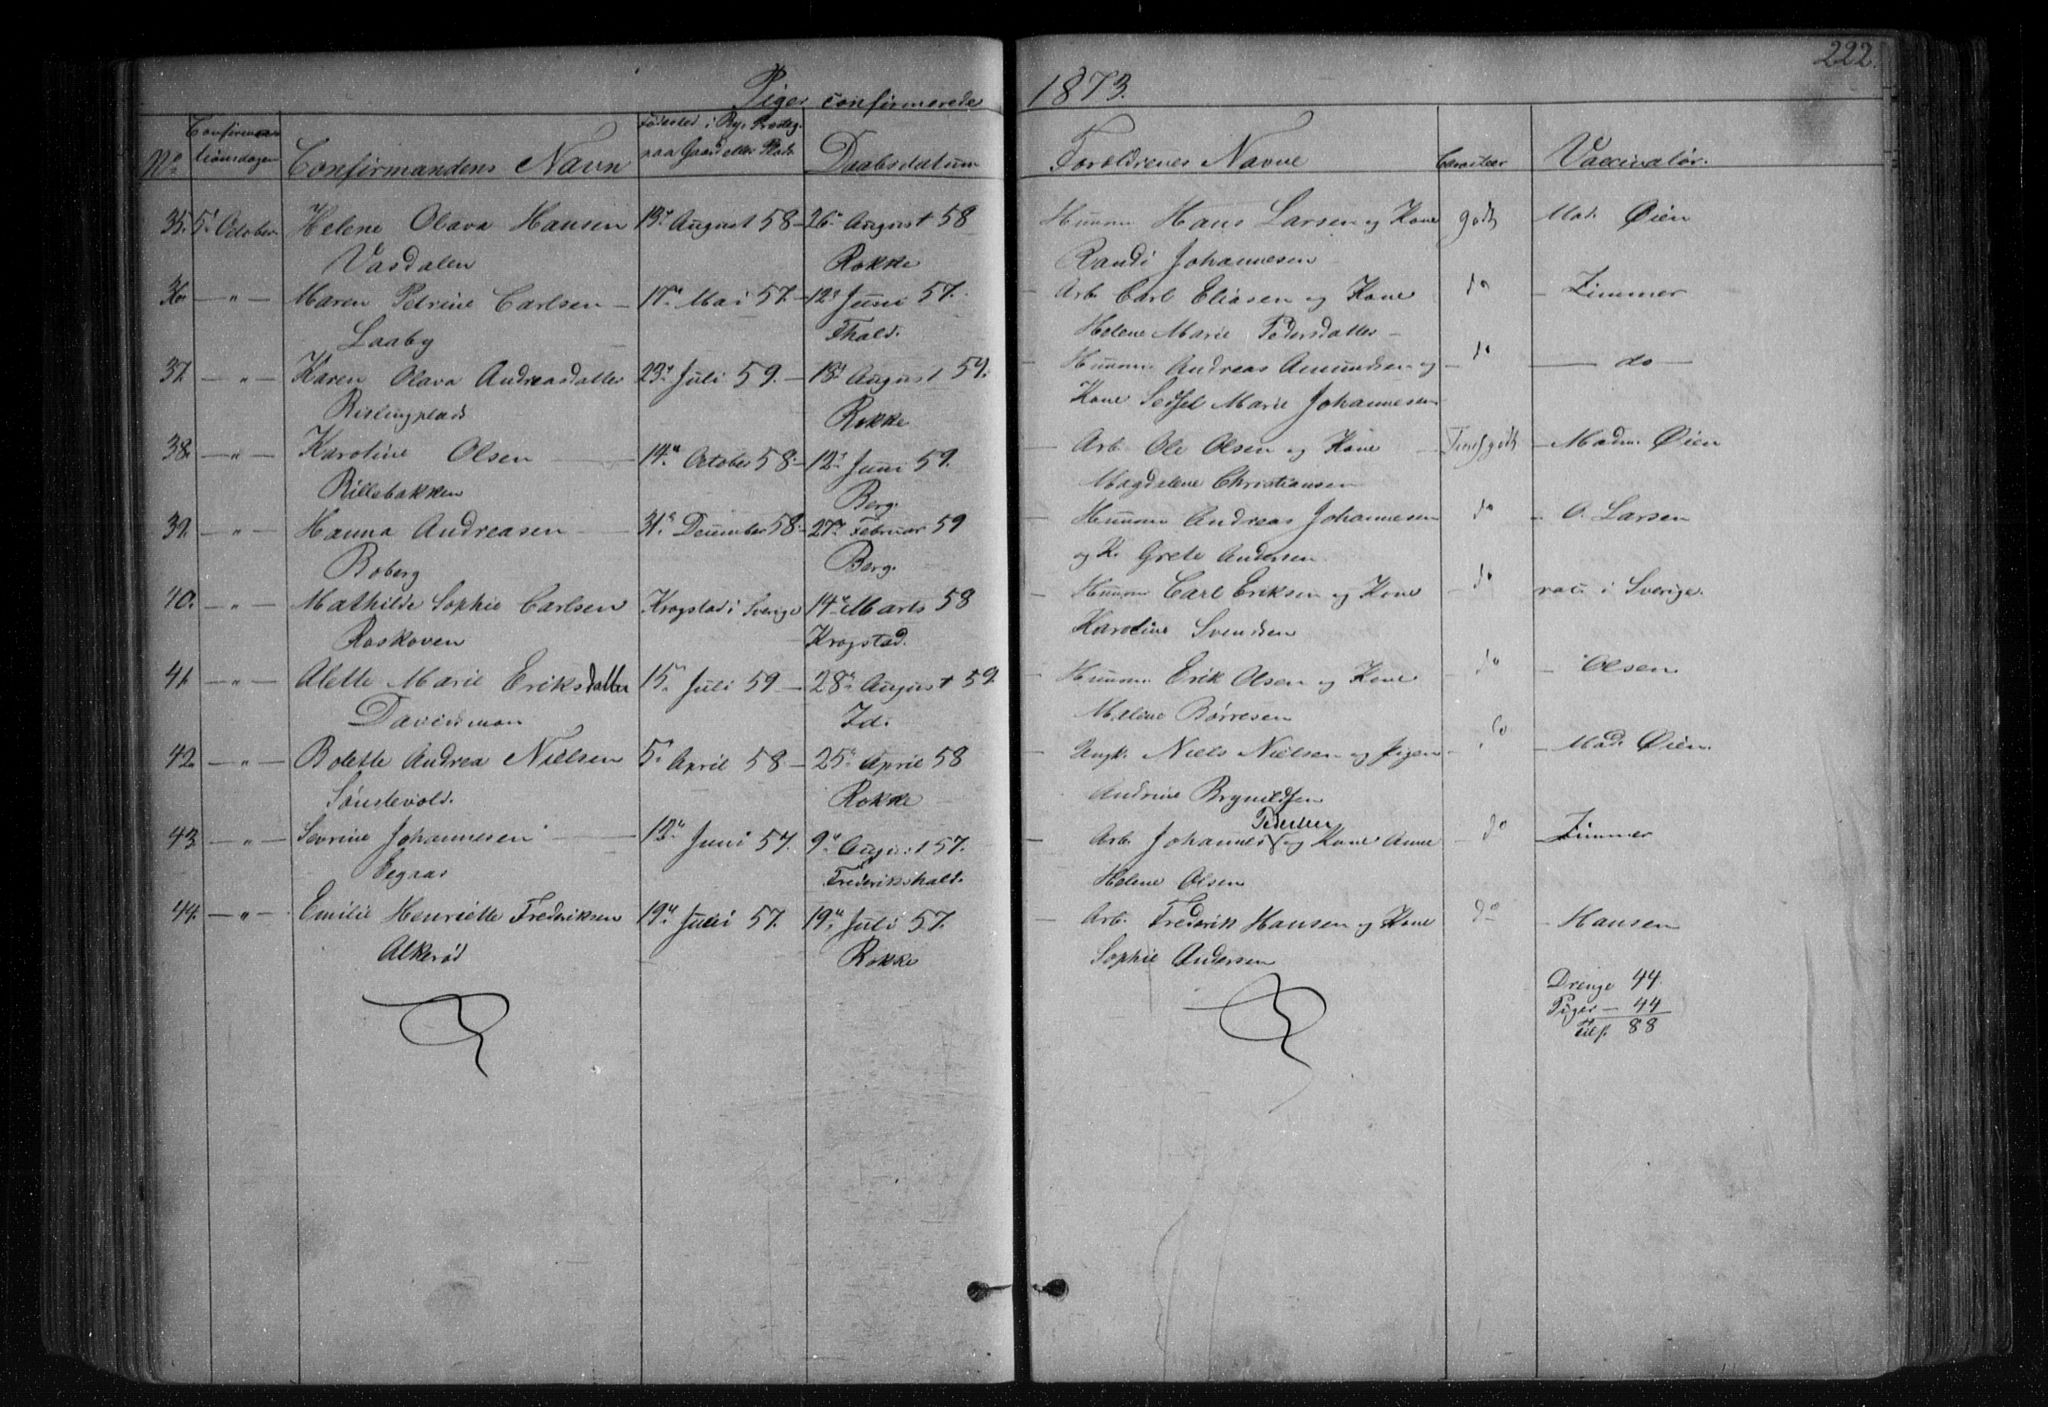 222.
Piger confirmerede 1873.
No Confirmationsdagen Confirmandens Navn Fødested i By, Præsteg. paa Gaard eller Plads Daabsdatum Forældrenes Navne Caracter Vaccinatør.
35. 5' October Helene Olava Hansen 13de August 58 - 26de August 58 Huusm. Hans Larsen og Kone godt Mad. Øien
Vasdalen Rokke Randi Johannesen
36 - " - Maren Petrine Carlsen - 17de Mai 57. - 12te Juni 57. - Arb. Carl Eliasen og Kone do - Zimmer
Laaby Fhald. Helene Marie Pedersdatter -
37. - " - Karen Olava Andreasdatter 23de Juli 59. - 18de August 59. - Huusm. Andreas Amundsen og - do - do -
Rokke Kone Sedsel Marie Johannesen
38. - " - Karoline Olsen - 14de October 58. - 12te Juni 59. - Arb. Ole Olsen og Kone - godt - Madm. Øien
Rillebakken Berg. Magdalene Christiansen
39. - " - Hanna Andreasen - 31te December 58. - 27de Februar 59 - Huusm. Andreas Johannesen do - O. Larsen
Boberg Berg. og K. Grete Andersen
40. - " - Mathilde Sophie Carlsen Krogstad i Sverige 14de Marts 58 - Huusm. Carl Eriksen og Kone do vac. i Sverige.
Roskoven Krogstad. Karoline Svendsen
41. - " - Alette Marie Eriksdatter 15de Juli 59 - 28de August 59. - Huusm. Erik Olsen og Kone do - Olsen
Davidsmon Id. Børresen
42. - " - Bolette Andrea Nielsen 5te April 58 - 25de April 58 - Ungk. Niels Nielsen og Pigen - do - Mad. Øien.
Sønstevold. Rokke Andrine Brynildsen
Pedersen
43. - " - Sevrine Johannesen - 12te Juni 57. 9de August 57. - Arb. Johannes og Kone Anne - do - Zimmer
Frederikshald. Helene Olsen
44. - " - Emilie Henriette Fredriksen 19de Juli 57. 19de Juli 57. - Arb. Frederik Hansen og Kone do - Hansen
Alkerød Rokke Sophie Andersen
Drenge 44.
Piger - 44
Tils. 88